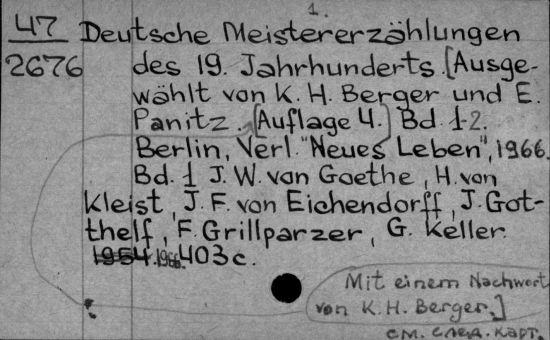 1.
47 Deutsche Meistererzählungen
2676 des 19. Jahrhunderts. [Ausge-
wählt von K. H. Berger und E.
Panitz. [Auflage 4.] Bd. 1-2.
Berlin, Verl. "Neues Leben", 1966.
Bd. 1 J. W. von Goethe, H. von
Kleist, J. F. von Eichendorff, J. Got-
thelf, F. Grillparzer, G. Keller.
1954. 1966. 403 с.
Mit einem Nachwort
von K. H. Berger.]
см. след. карт.